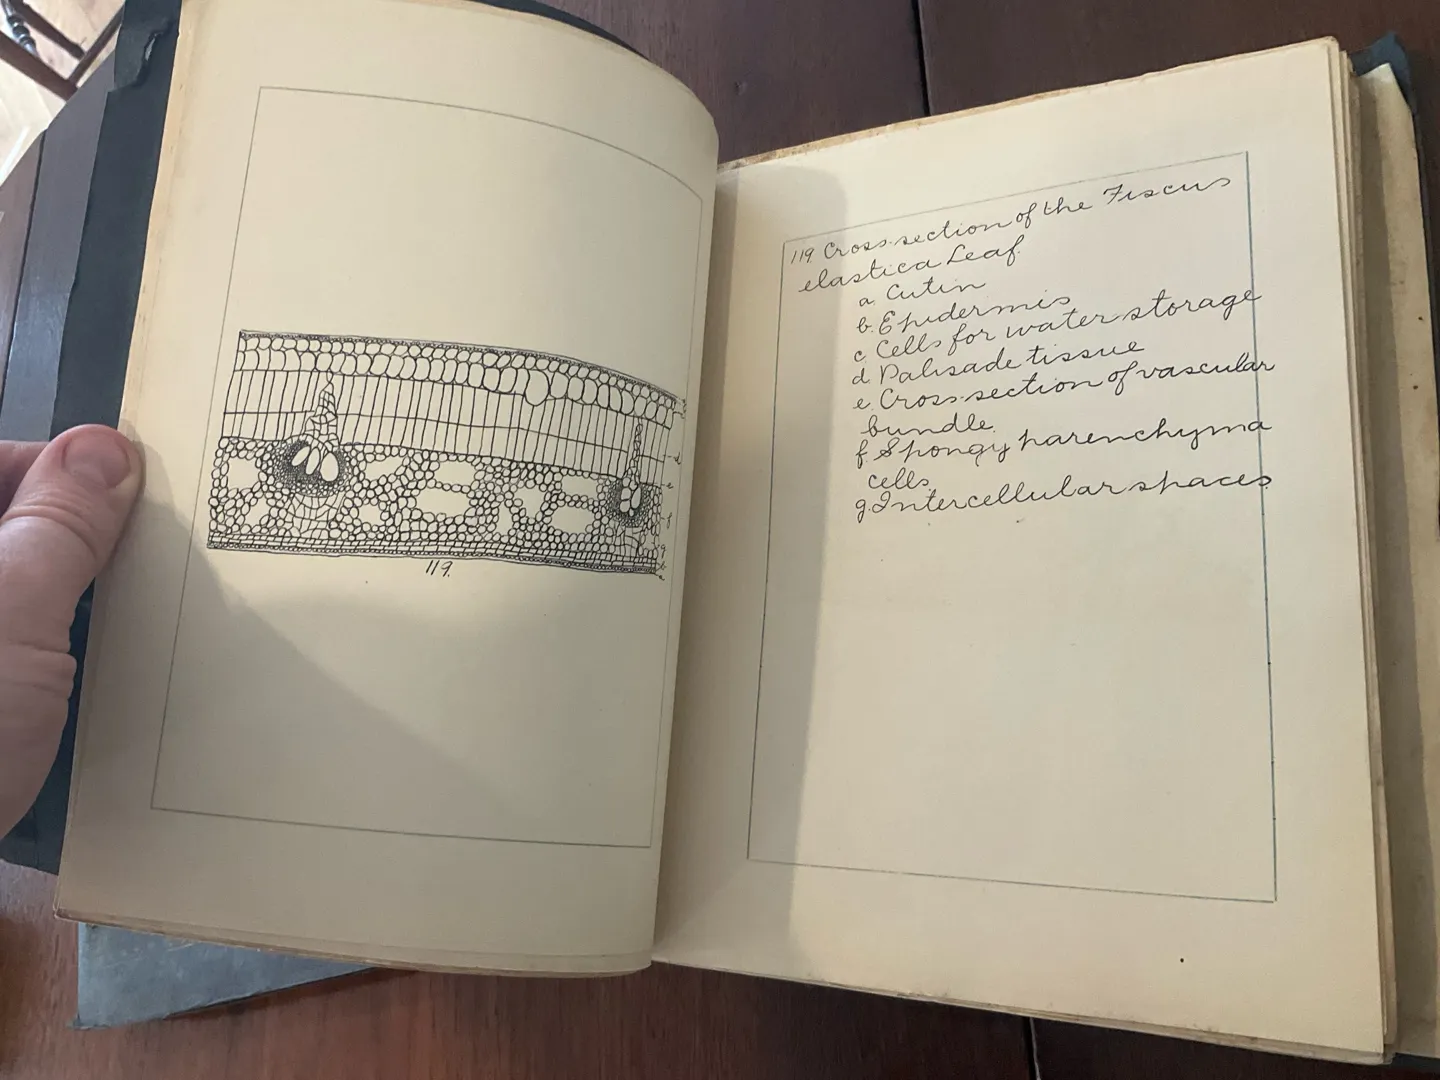 119.
d
e
f
g
b
a
119 Cross-section of the Fiscus
elastica Leaf.
a. Cutin
b. Epidermis
c. Cells for water storage
d. Palisade tissue
e. Cross-section of vascular
bundle.
f. Spongy parenchyma
cells.
g. Intercellular spaces.